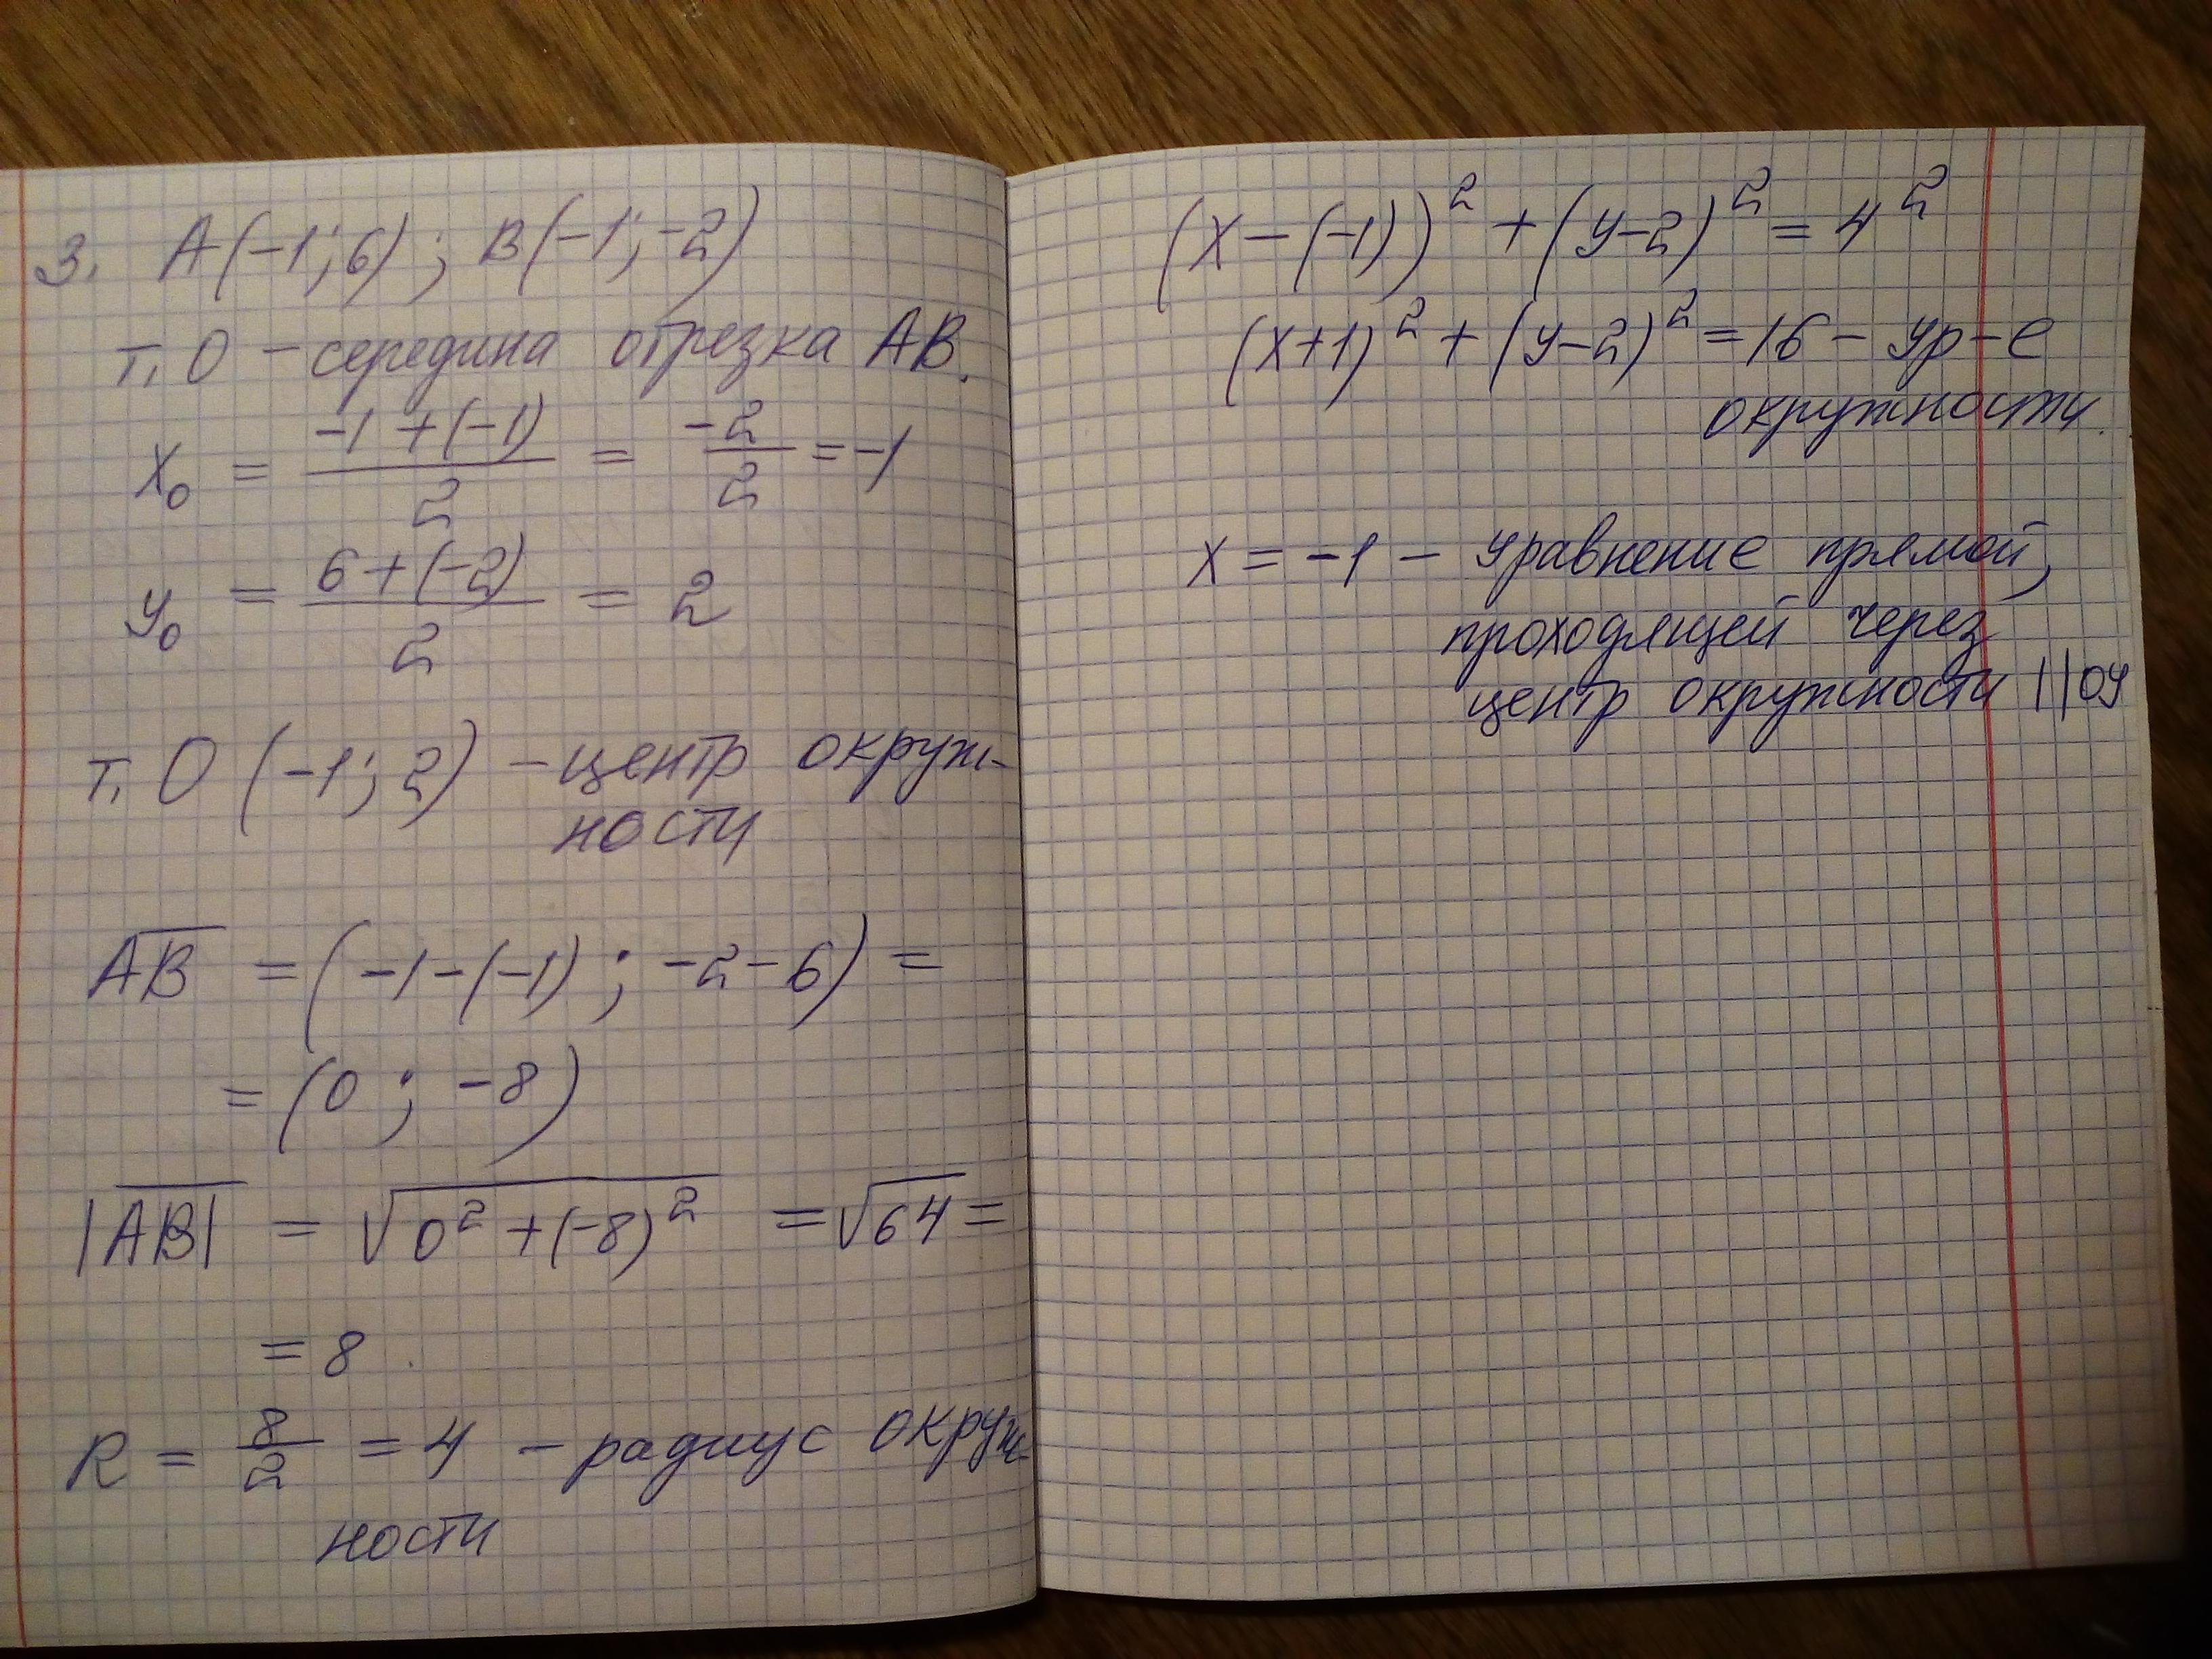 3. A(-1; 6); B(-1; -2)
т. O - середина отрезка AB.
x₀ = (-1 + (-1))/2 = -2/2 = -1
y₀ = (6 + (-2))/2 = 2
т. O (-1; 2) - центр окруж-
ности
A̅B̅ = (-1-(-1); -2-6) =
= (0; -8)
|A̅B̅| = √(0² + (-8)²) = √64 =
= 8
R = 8/2 = 4 - радиус окруж-
ности
(x - (-1))² + (y-2)² = 4²
(x+1)² + (y-2)² = 16 - ур-е
окружности.
x = -1 - уравнение прямой,
проходящей через
центр окружности || oy